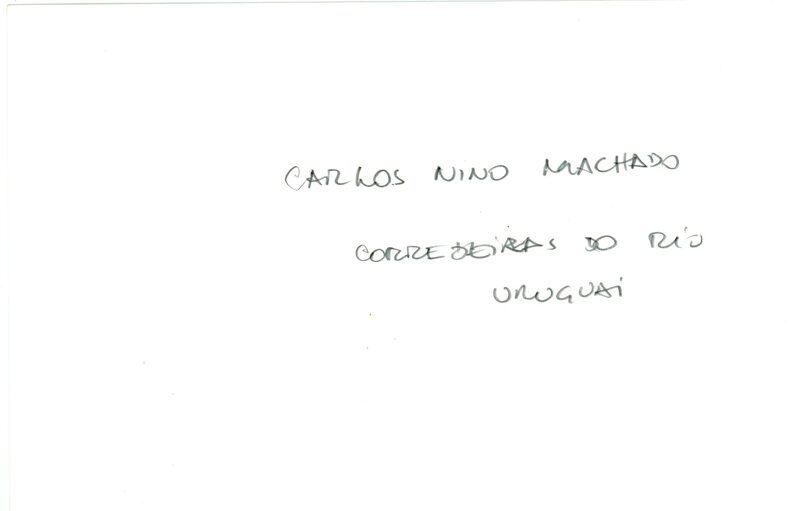 CARLOS NINO MACHADO
CORREDEIRAS DO RIO
URUGUAI